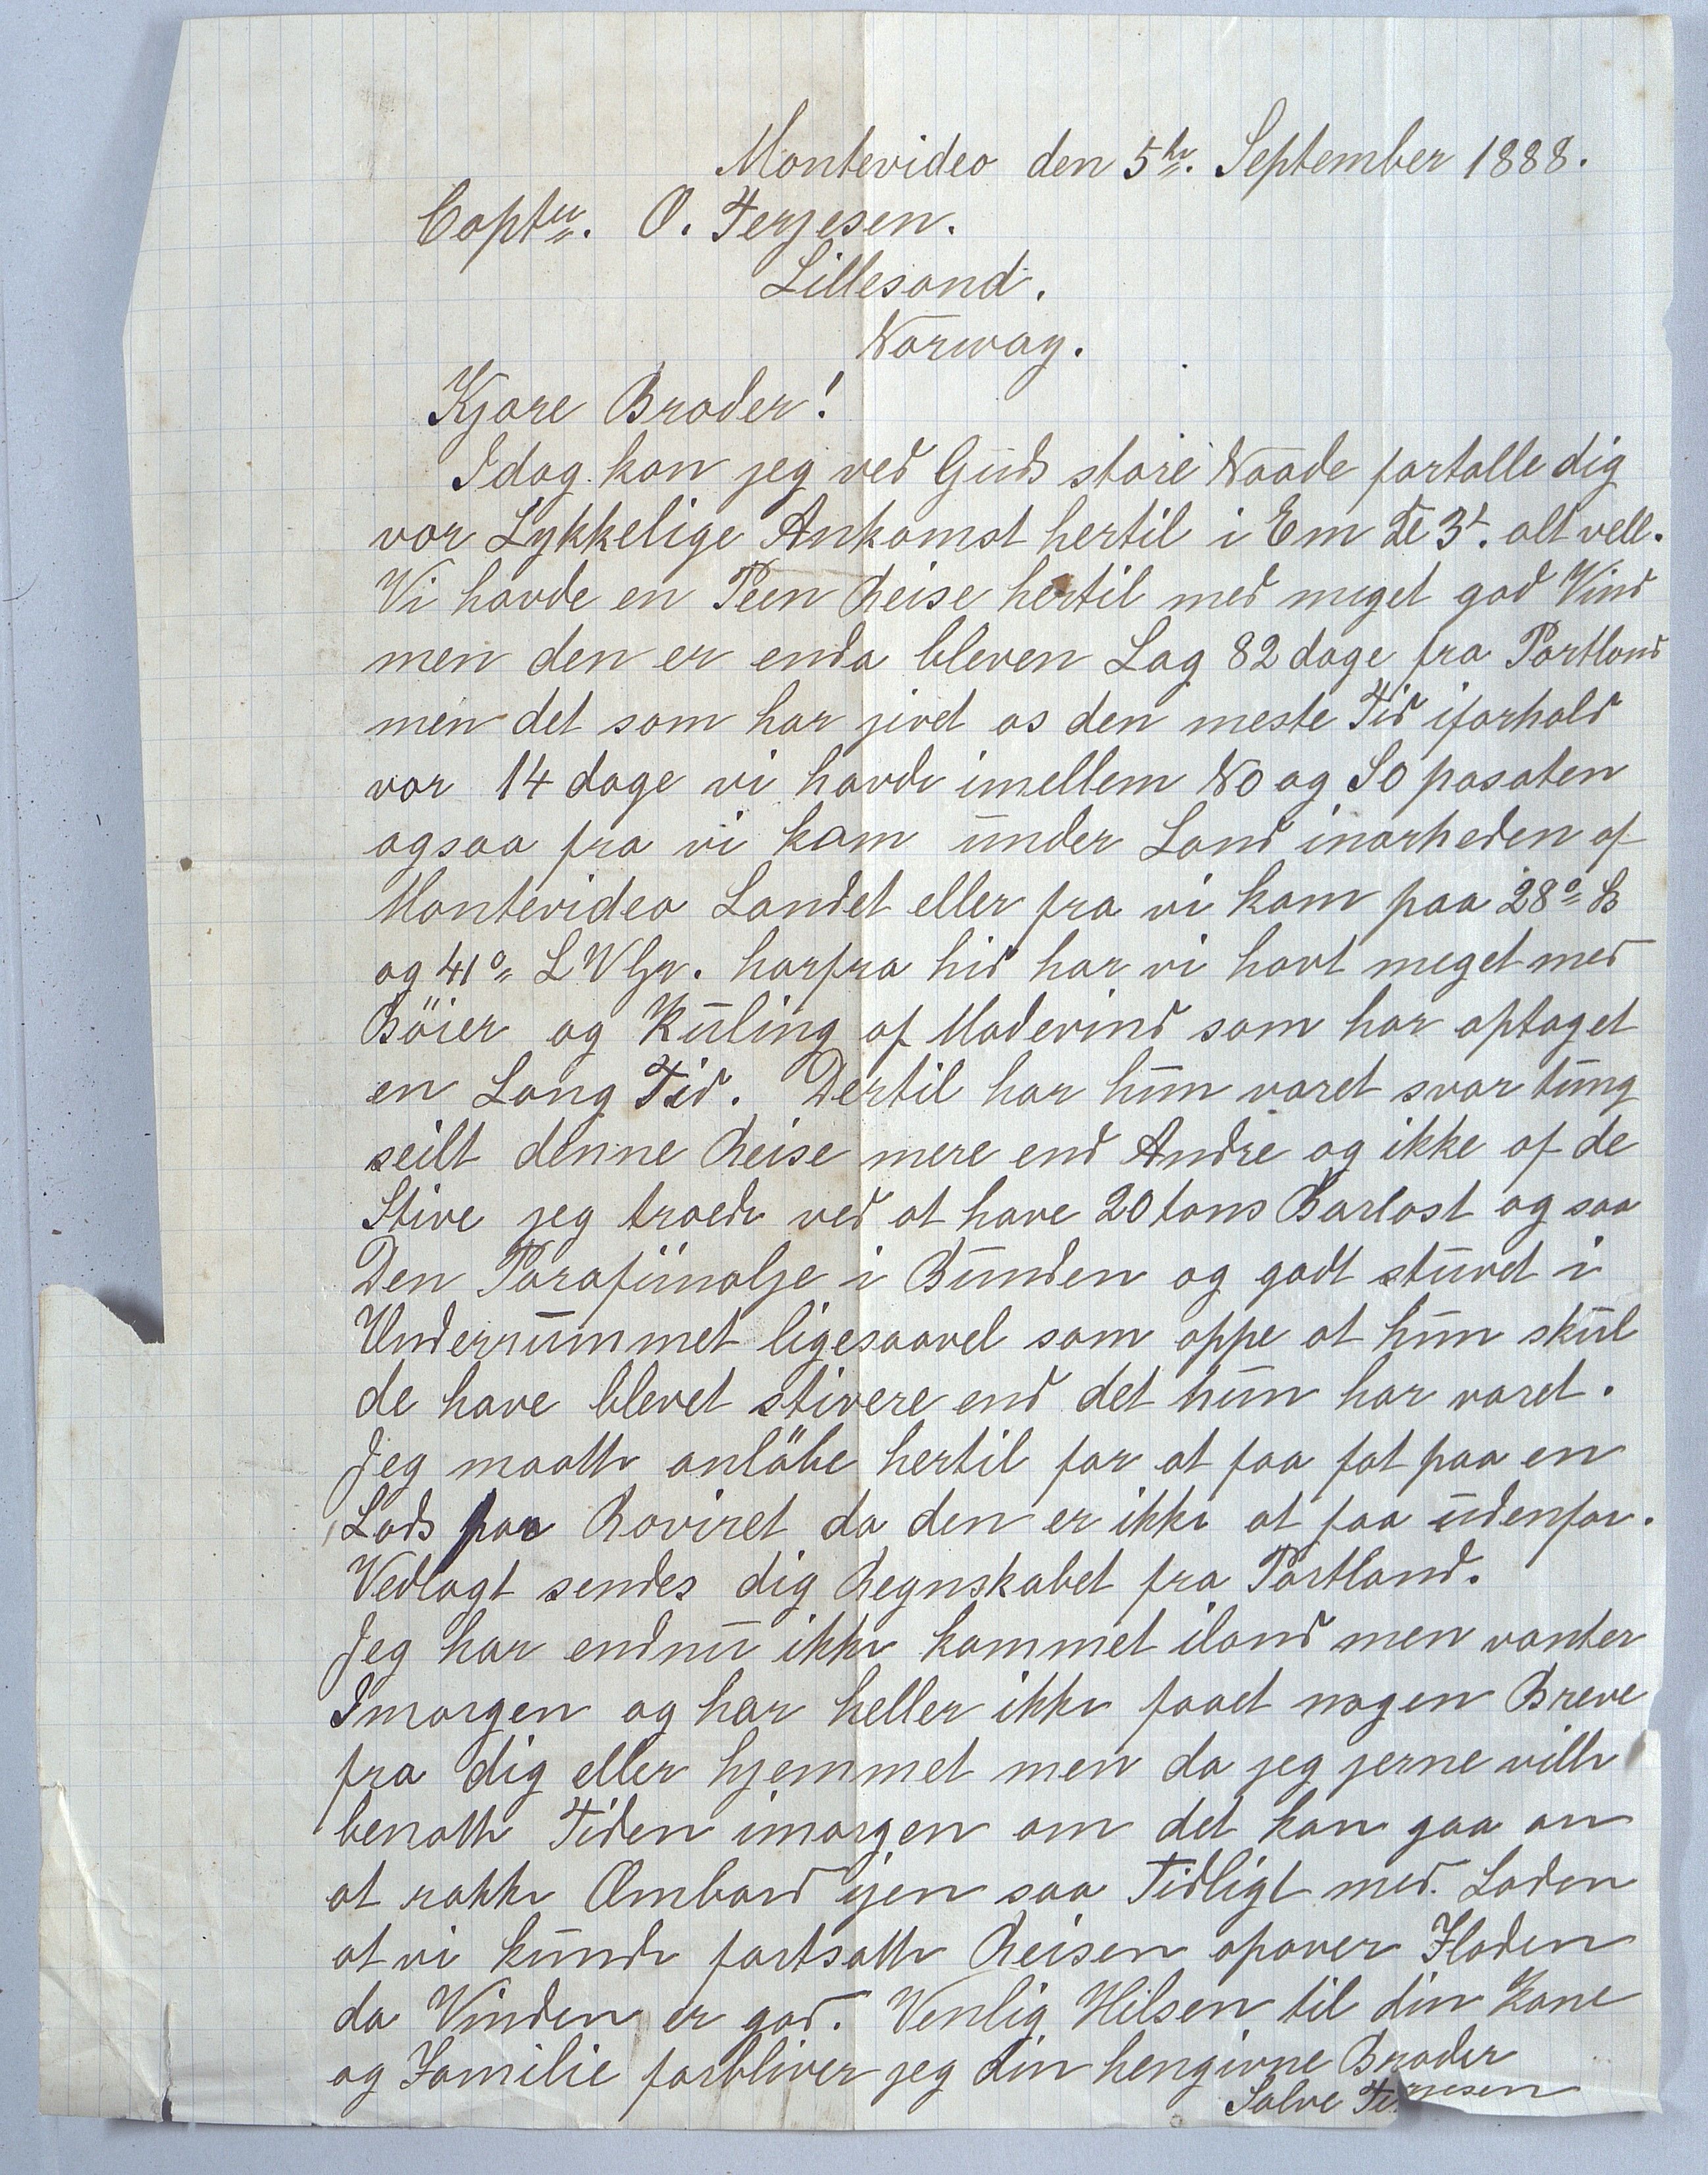 Montevideo den 5te. September 1888.
Captn. O. Terjesen.
Lillesand.
Norway.
Kjære Broder!
Idag kan jeg ved Guds store Naade fortalle dig
vor Lykkelige Ankomst hertil i Em De 3d. alt vell.
Vi havde en Peen Reise hertil med meget god Vind
men den er enda bleven Lag 82 dage fra Portland
men det som har jivet os den meste Tid iforhold
var 14 dage vi havde imellem NO og SO pasaten
agsaa fra vi kom under Land inarheden af
Montevideo Landet eller fra vi kom paa 28° B
og 41° L V Gr. harfra hid har vi havt meget med
Böier og Kuling af Modevind som har optaget
en Lang Tid. Dertil har hun varet svar tung
seilt denne Reise mere end Andre og ikke af de
Stive jeg troede ved at have 20 tons Barlast og saa
Den Parafiinolje i Bunden og godt stuvet i
Underrummet ligesaavel som oppe at hun skul
de have blevet stivere end det hun har varet.
Jeg maatte anlöbe hertil for at faa fat paa en
Lods paa Roviret da den er ikke at faa udenfor.
Vedlagt sendes dig Regnskabet fra Portland.
Jeg har endnu ikke kommet iland men vanter
Imorgen og har heller ikke faaet nogen Breve
fra dig eller hjemmet men da jeg jerne ville
benatte Tiden imorgen om det kan gaa an
at rakke Ombord ijen saa Tidligt med Loden
at vi kunde fortsatte Reisen opover Floden
da Vinden er god. Venlig Hilsen til din Kone
og Familie forbliver jeg din hengivne Broder
Salve Terjesen